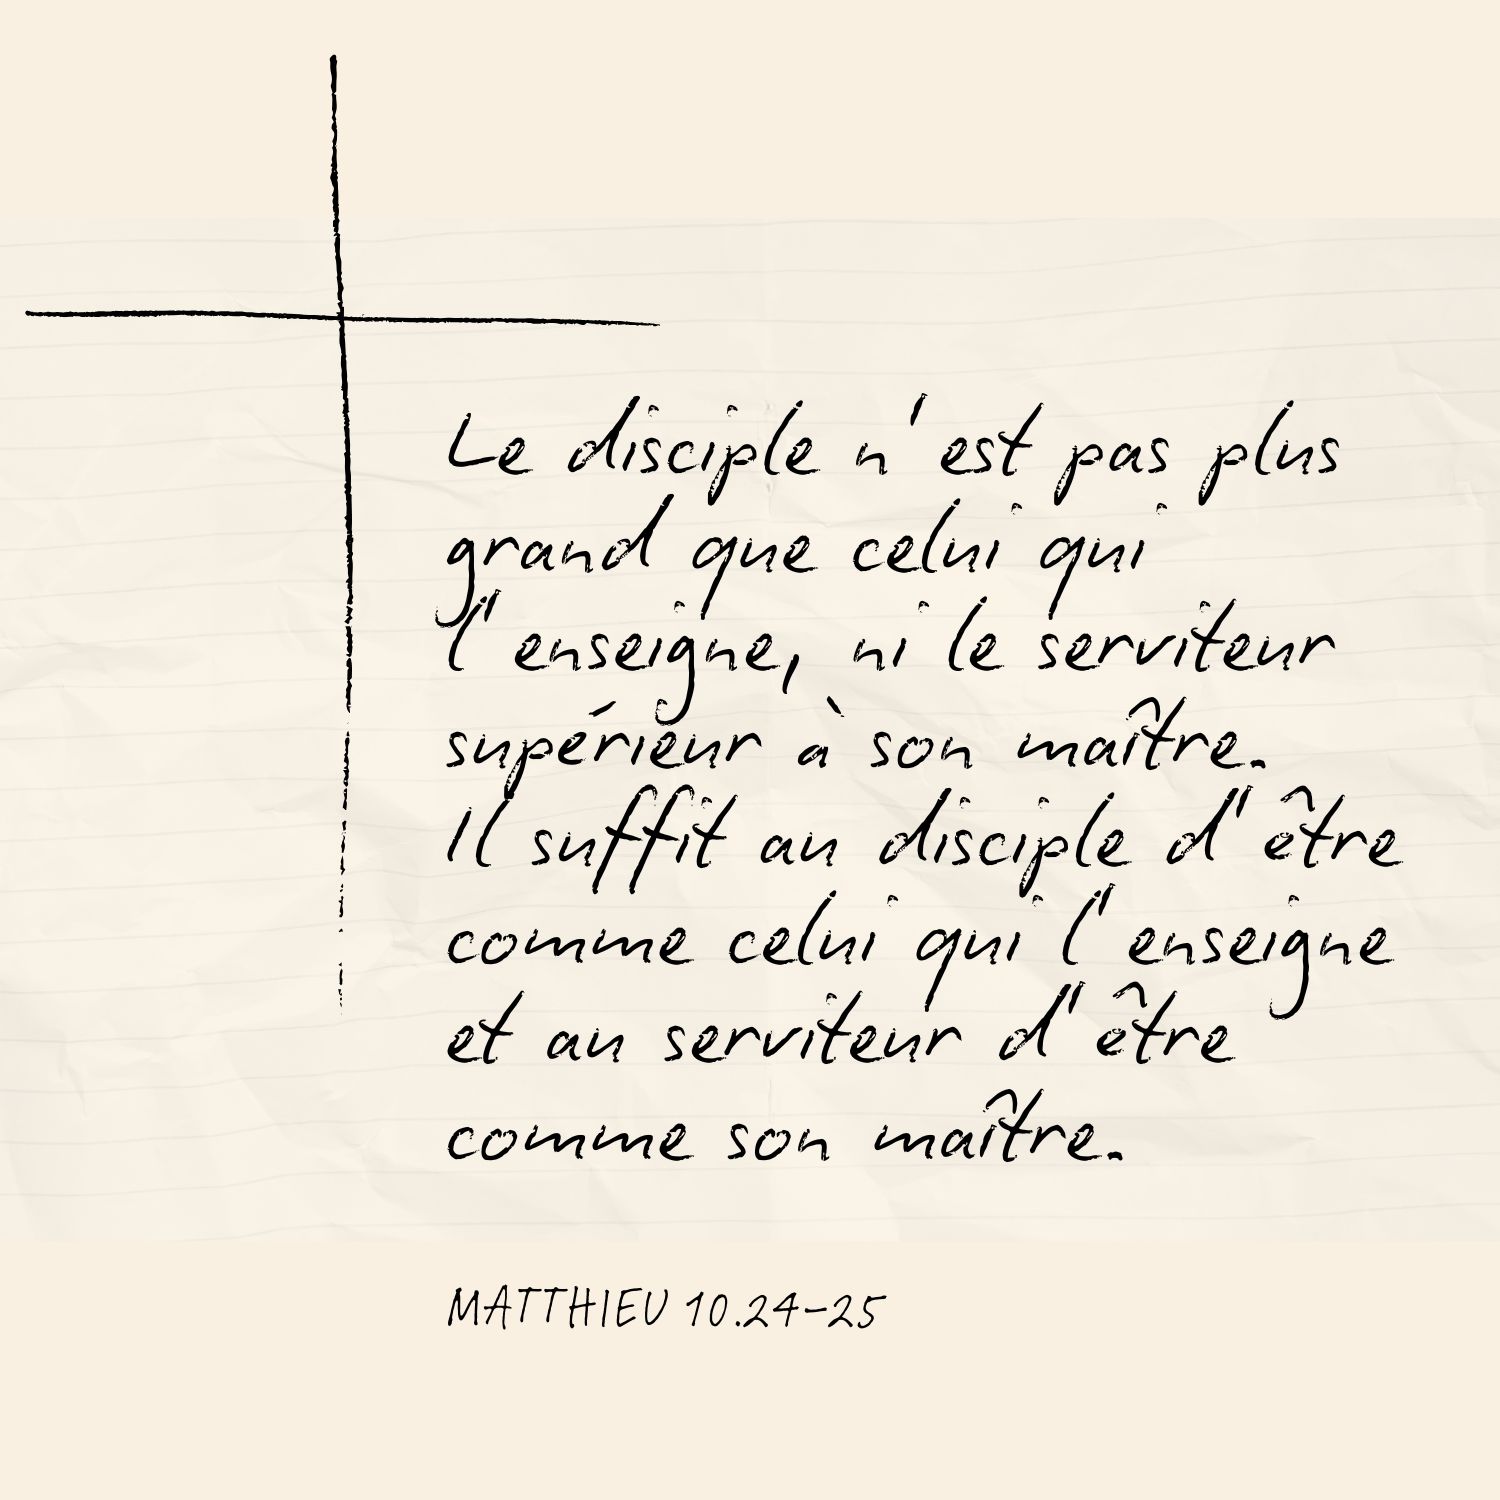 Le disciple n'est pas plus
grand que celui qui
l'enseigne, ni le serviteur
supérieur à son maître.
Il suffit au disciple d'être
comme celui qui l'enseigne
et au serviteur d'être
comme son maître.
MATTHIEU 10.24-25